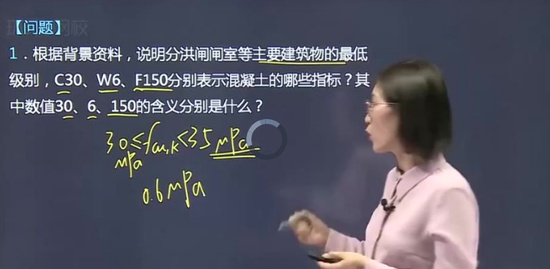 【问题】
1．根据背景资料，说明分洪闸闸室等主要建筑物的最低
级别，C30、W6、F150分别表示混凝土的哪些指标？其
中数值30、6、150的含义分别是什么？
30≤fcu,k<35MPa
MPa
0.6MPa